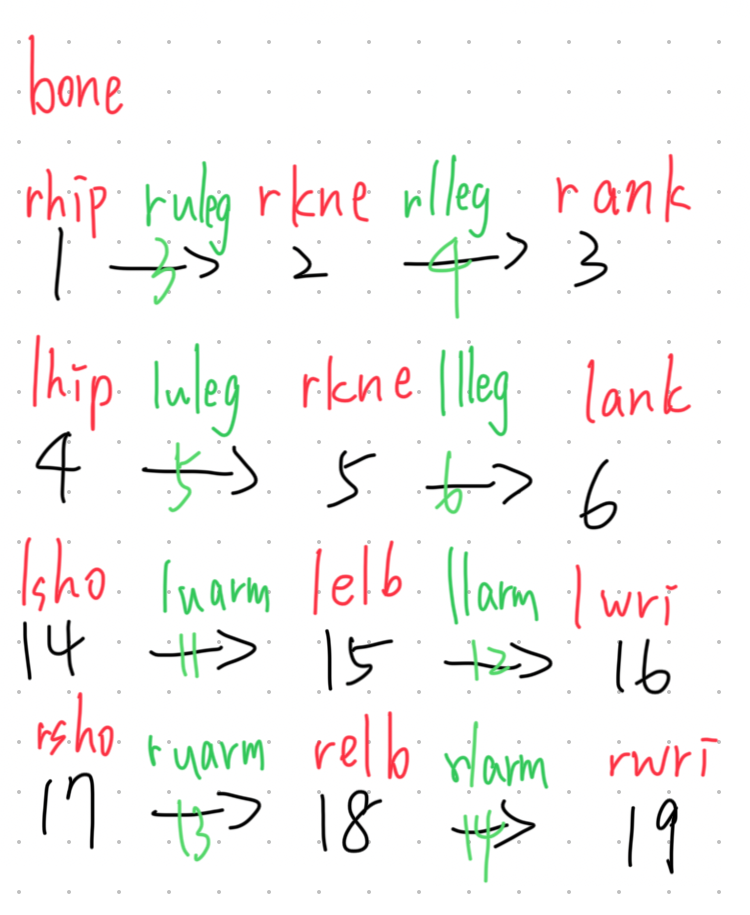 bone
rhip ruleg rkne rlleg rank
1 3 2 4 3
lhip luleg rkne llleg lank
4 5 5 6 6
lsho luarm lelb llarm lwri
14 11 15 12 16
rsho ruarm relb rlarm rwri
17 13 18 14 19